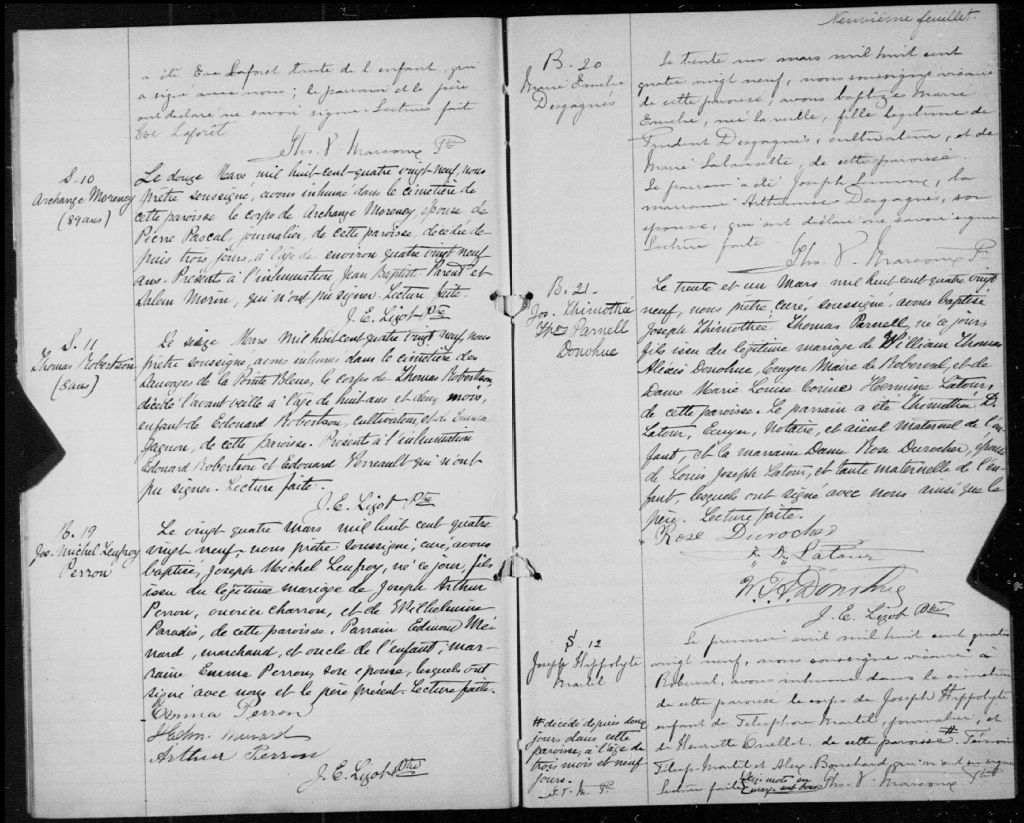 a été Eve Laforet tante de l'enfant, qui
a signé avec nous; le parrain et le père
ont déclaré ne savoir signer. Lecture faite
Eve Laforêt
Ths. V. Marcoux Ptre
S. 10
Archange Moreney
(89 ans)
Le douze Mars mil huit-cent-quatre vingt neuf, nous
prêtre soussigné, avons inhumé dans le cimetière de
cette paroisse le corps de Archange Moreney, épouse de
Pierre Pascal, journalier, de cette paroisse, décédée de-
puis trois jours, à l'âge de environ quatre vingt neuf
ans. Présents à l'inhumation Jean Baptist Parent et
Salem Morin, qui n'ont pu signer. Lecture faite.
J. E. Lizot Ptre
S. 11
Thomas Robertson
(8 ans)
Le seize Mars mil huit cent quatre vingt neuf, nous
prêtre soussigné, avons inhumé dans le cimetière des
Sauvages de la Pointe Bleue, le corps de Thomas Robertson
décédé l'avant veille à l'âge de huit ans et deux mois,
enfant de Edouard Robertson, cultivateur, et de Emma
Gagnon, de cette paroisse. Présent à l'inhumation
Edouard Robertson et Edouard Verreault qui n'ont
pu signer. Lecture faite.
J. E. Lizot Ptre
B. 19
Jos. Michel Leufroy
Perron
Le vingt quatre Mars mil huit cent quatre
vingt neuf, nous prêtre soussigné, curé, avons
baptisé, Joseph Michel Leufroy, né ce jour, fils
issu du légitime mariage de Joseph Arthur
Perron, ouvrier charron, et de Wilhelmine
Paradis, de cette paroisse. Parrain Edmond Mé-
nard, marchand, et oncle de l'enfant; mar-
raine Emma Perron, son épouse, lesquels ont
signé avec nous et le père présent. Lecture faite.
Emma Perron
Arthur Perron
J. E. Lizot Ptre
Neuvième feuillet.
B. 20
Marie Emelie
Desgagnés
Le trente un mars mil huit cent
quatre vingt neuf, nous soussigné vicaire
de cette paroisse, avons baptisé Marie
Emelie, née la veille, fille légitime de
Prudent Desgagnés, cultivateur, et de
Marie de cette paroisse.
Le parrain a été Joseph la
marraine Desgagnés, son
épouse, qui ont déclaré ne savoir signer
Lecture faite.
Ths. V. Marcoux Ptre
B. 21
Jos. Thimothée
Ths Parnell
Donohue
Le trente et un Mars mil huit cent quatre vingt
neuf, nous prêtre, curé, soussigné, avons baptisé
Joseph Thimothée Thomas Parnell, né ce jour,
fils issu du légitime mariage de William Thomas
Alexis Donohue, Ecuyer Maire de Roberval, et de
Dame Marie Louise Corine Hermine Latour,
de cette paroisse. Le parrain a été Thimothée D.
Latour, Ecuyer, Notaire, et aieul maternel de l'en-
fant, et la marraine Dame Rose Durocher, épouse
de Louis Joseph Latour, et tante maternelle de l'en-
fant, lesquels ont signé avec nous ainsi que le
père. Lecture faite.
Rose Durocher
Latour
W. T. A. Donohue
J. E. Lizot Ptre
S. 12
Joseph Hippolyte
Martel
# décédé depuis deux
jours dans cette
paroisse, à l'âge de
trois mois et neuf
jours.
Le premier avril mil huit cent quatre
vingt neuf, nous soussigné vicaire à
Roberval, avons inhumé dans le cimetière
de cette paroisse le corps de Joseph Hippolyte
enfant de Telesphore Martel, journalier, et
de Henriette Ouellet, de cette paroisse #. Témoins
Telesp. Martel et Alex. Bouchard, qui n'ont su signer
Lecture faite.
Ths. V. Marcoux Ptre